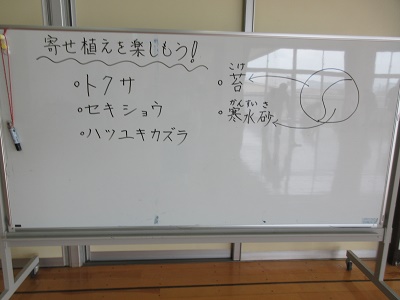 寄せ植えを楽しもう!
・トクサ
・セキショウ
・ハツユキカズラ
こけ
・苔
かんすい さ
・寒水砂